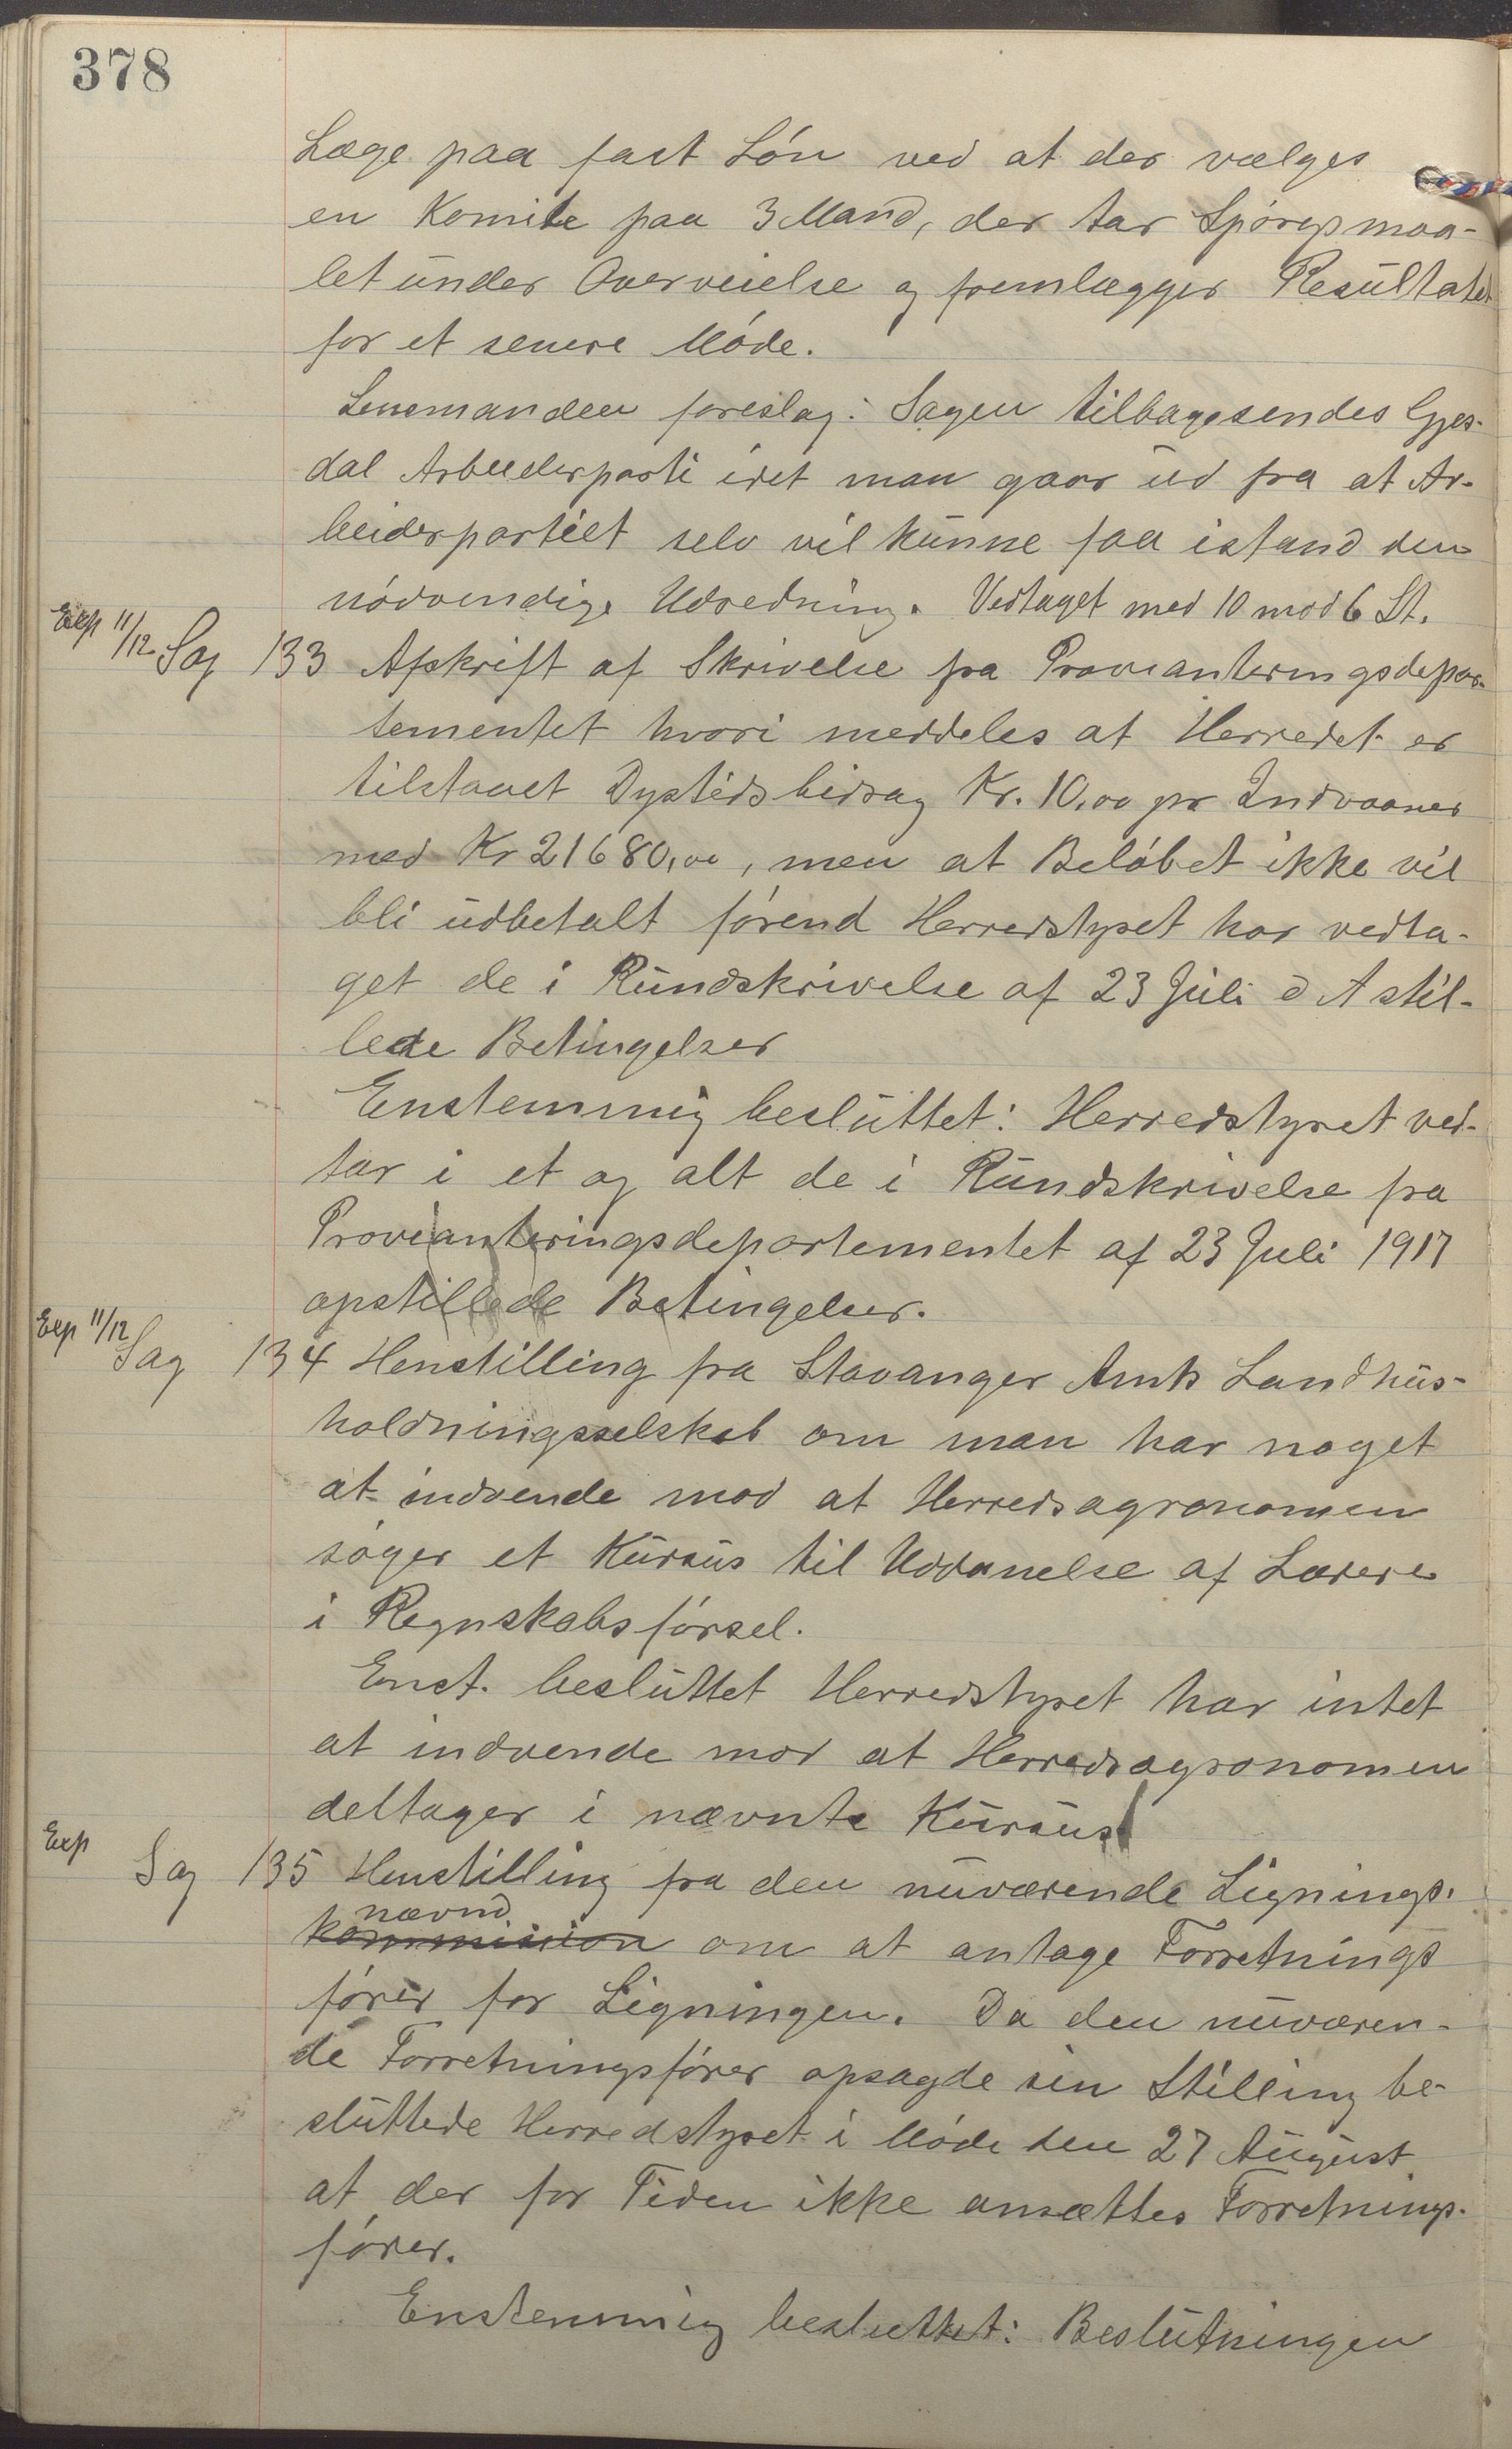 378
Læge paa fast Løn ved at der vælges
en Komite paa 3 Mand, der tar Spørgsmaa-
let under Overveielse og fremlægger Resultatet
for et senere Møde.
Lensmanden foreslag: Sagen tilbagesendes Gjes-
dal Arbeiderparti idet man gaar ud fra at Ar-
beiderpartiet selv vil kunne faa istand den
nødvendige Udredning. Vedtaget med 10 mod 6 St.
Exp 11/12. Sag 133 Afskrift af Skrivelse fra Provianteringsdepar-
tementet hvori meddeles at Herredet er
tilstaaet Dyrtidsbidrag Kr. 10,00 pr Indvaaner
med Kr 21680,00, men at Beløbet ikke vil
bli udbetalt førend Herredstyret har vedta-
get de i Rundskrivelse af 23 Juli d A stil-
lede Betingelser
Enstemmig besluttet: Herredstyret ved-
tar i et og alt de i Rundskrivelse fra
Provianteringsdepartementet af 23 Juli 1917
opstillede Betingelser.
Exp 11/12 Sag 134 Henstilling fra Stavanger Amts Landhus-
holdningsselskab om man har noget
at indvende mod at Herredsagronomen
søger et Kursus til Uddanelse af Lærere
i Regnskabsførsel.
Enst. besluttet Herredstyret har intet
at indvende mod at Herredsagronomen
deltager i nævnte Kursus
Exp Sag 135 Henstilling fra den nuværende Lignings-
nævnd
kommission om at antage Forretnings
fører for Ligningen. Da den nuværen-
de Forretningsfører opsagde sin Stilling be-
sluttede Herredstyret i Møde den 27 August
at der for Tiden ikke ansættes Forretnings-
fører.
Enstemmig besluttet: Beslutningen